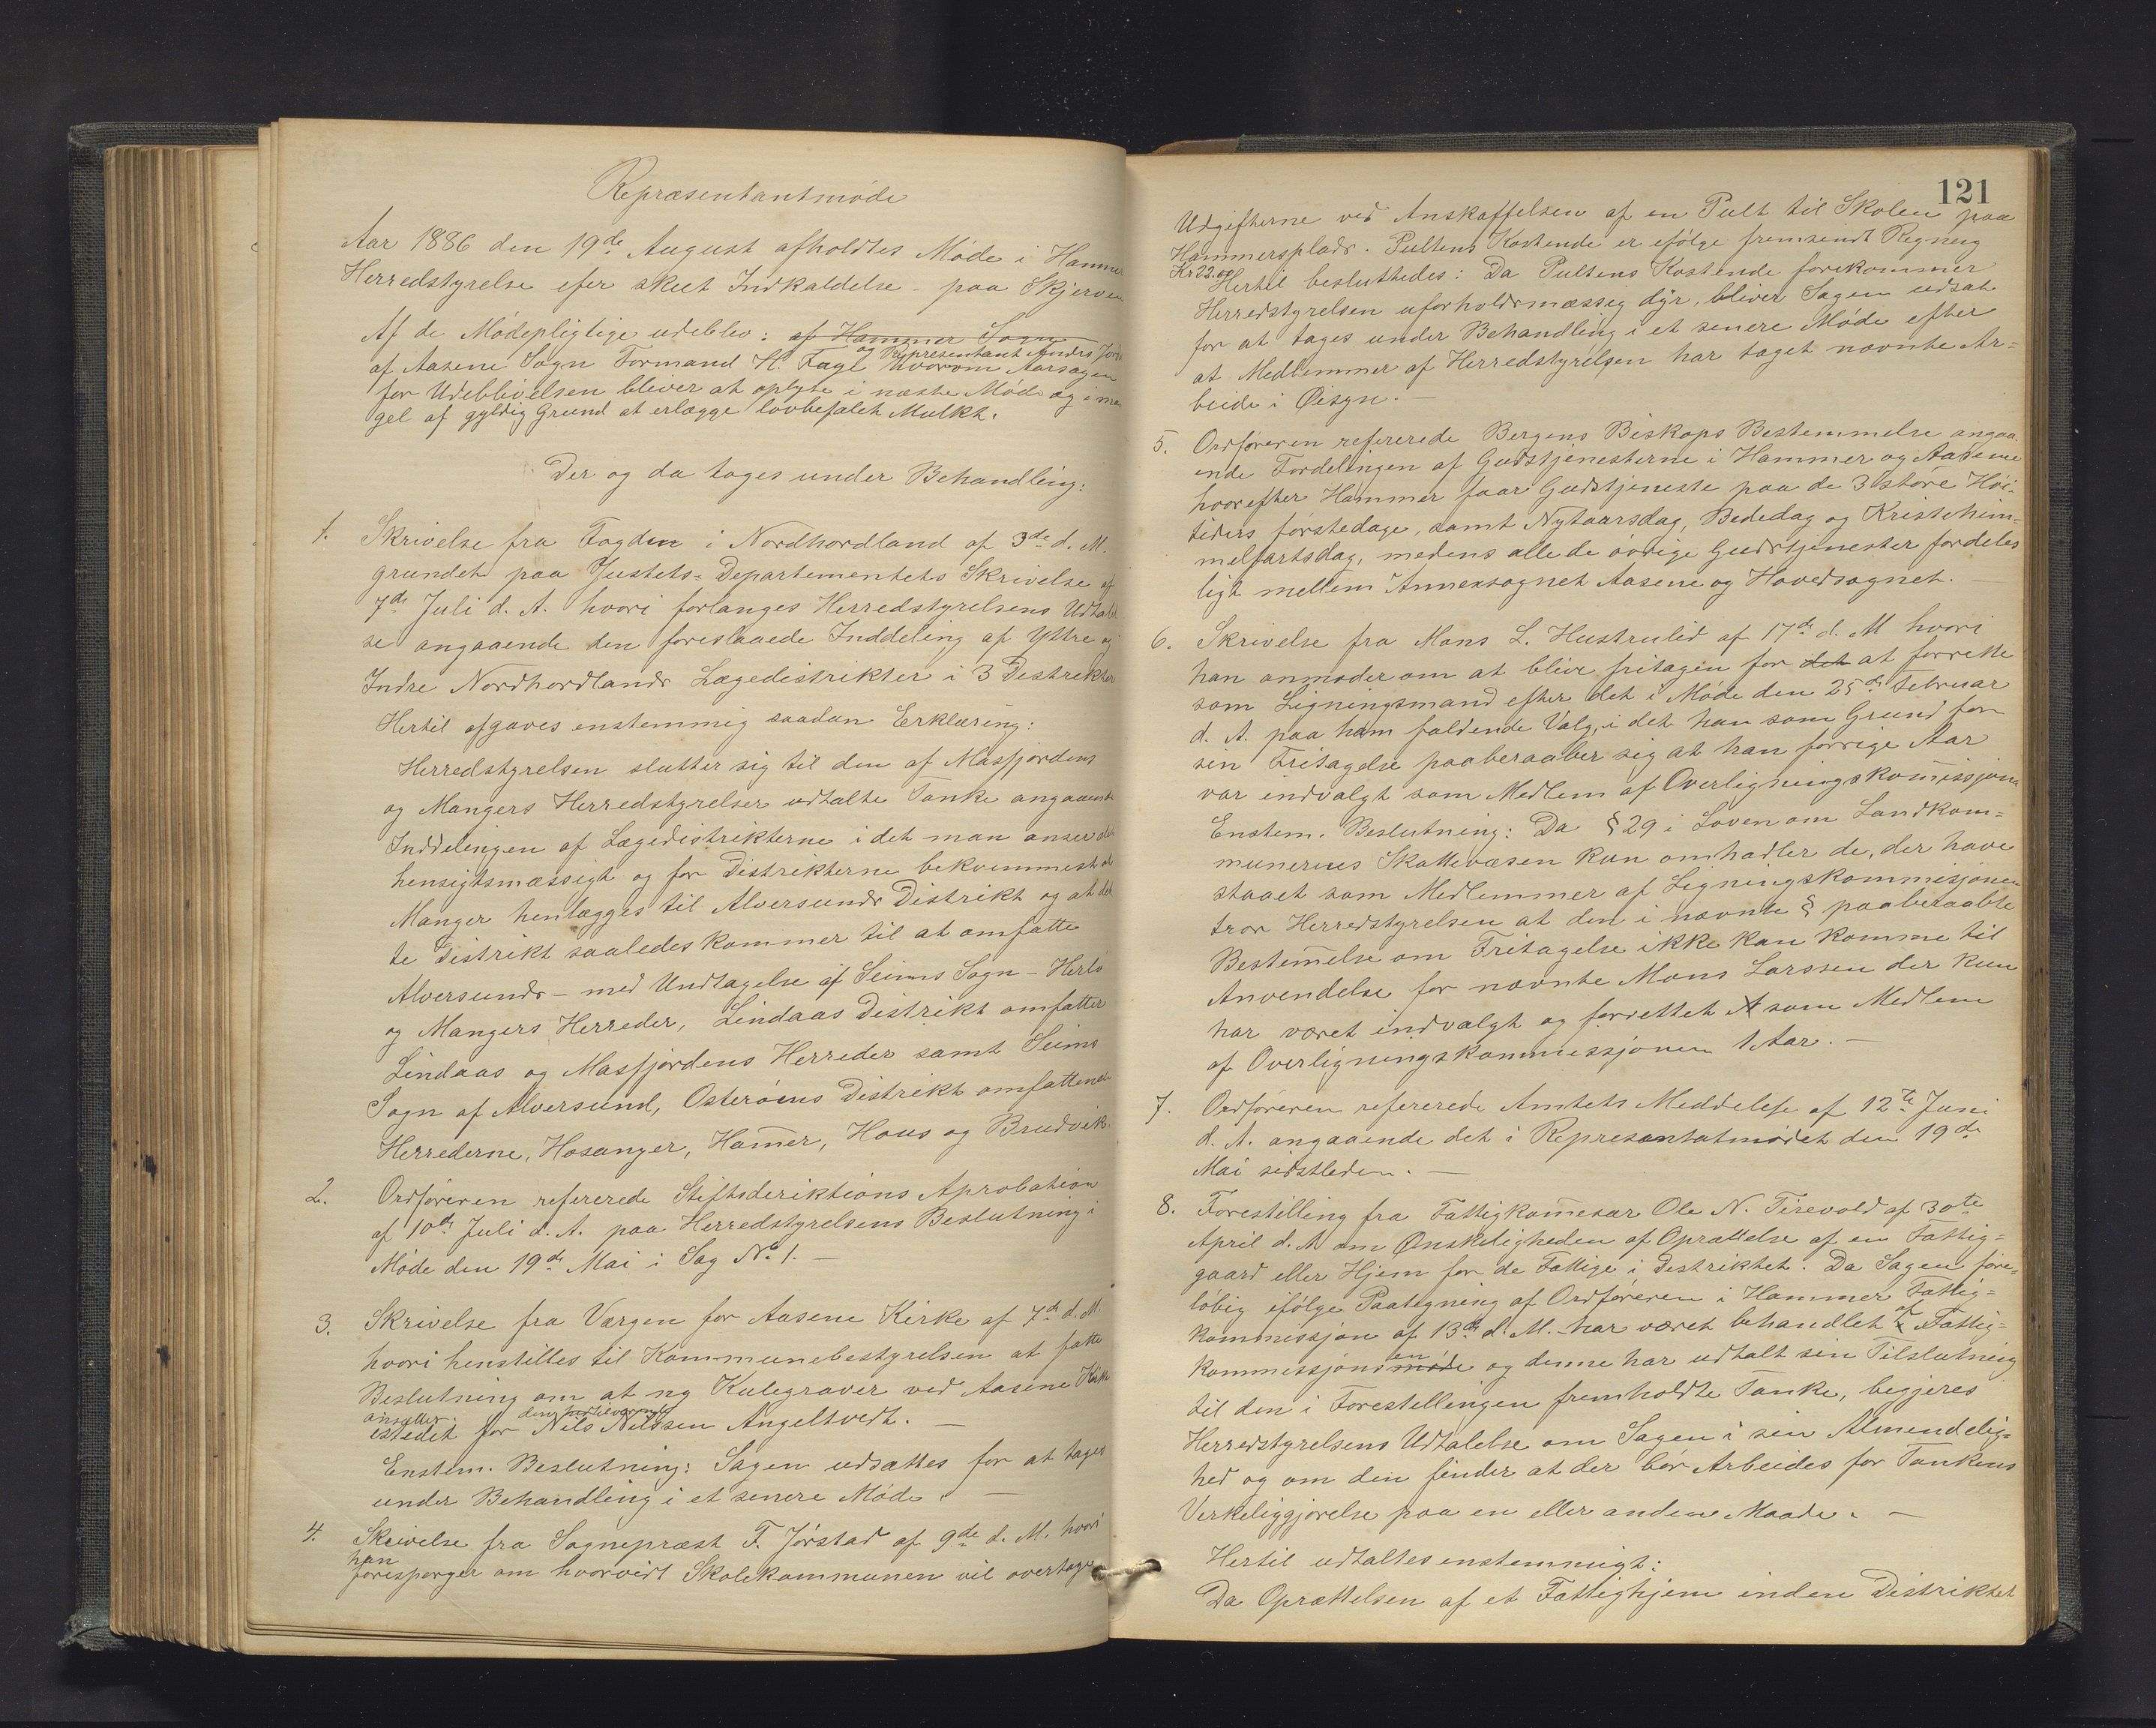 Repræsentantmøde
Aar 1886 den 19de August afholdtes Møde i Hammer
Herredstyrelse efer skeet Indkaldelse – paa Skjerven
Af de Mødepligtige udeblev: af Hammer Sogn
af Aasene Sogn Formand H. Fagl Hvorom Aarsagen
og Representant Anders
for Udeblivelsen bliver at oplyse i næste Møde og i man
gel af gyldig Grund at erlægge lovbefalet Mulkt.
Der og da toges under Behandling:
1. Skrivelse fra Fogden i Nordhordland af 3de d. M.
grundet paa Justets-Departementets Skrivelse af
7de Juli d. A. hvori forlanges Herredstyrelsens Udtalel
se angaaende den foreslaaede Inddeling af Yttre og
Indre Nordhordlands Lægedistrikter i 3 Distrikter
Hertil afgaves enstemmig saadan Erklæring:
Herredstyrelsen slutter sig til den af Masfjordens
og Mangers Herredstyrelser udtalte Tanke angaaende
Inddelingen af Lægedistrikterne i det man anser det
hensigtsmæssigt og for Distrikterne bekvemmest at
Manger henlægges til Alversunds Distrikt og at det
te Distrikt saaledes kommer til at omfatte
Alversunds – med Undtagelse af Seims Sogn – Herlø
og Mangers Herreder, Lindaas Distrikt omfatter
Lindaas og Masfjordens Herreder samt Seims
Sogn af Alversund, Osterøens Distrikt omfattende
Herrederne, Hosanger, Ham̄er, Hous og Brudvik.
2. Ordføreren refererede Stiftsderiktions Aprobation
af 10de Juli d. A. paa Herredstyrelsens Beslutning i
Møde den 19de Mai i Sag No 1. –
3. Skrivelse fra Værgen for Aasene Kirke af 7de d. M.
hvori henstilles til Kommunebestyrelsen at fatte
Beslutning om at ny Kulegraver ved Aasene Kirke
ansætter. den hertilværende
istedet for Nils Nilssen Angeltvedt. –
Enstem. Beslutning: Sagen udsættes for at tages
under Behandling i et senere Møde. –
4. Skrivelse fra Sognepræst F. Jørstad af 9de d. M. hvori
han
forespørger om hvorvidt Skolekommunen vil overtage
121
Udgifterne ved Anskaffelsen af en Pult til Skolen paa
Hammersplads. Pultens Kostende er efølge fremsendt Regning
Kr 22.00
Hertil besluttedes: Da Pultens Kostende forekommer
Herredstyrelsen uforholdsmæssig dyr, bliver Sagen udsat
for at tages under Behandling i et senere Møde efter
at Medlemmer af Herredstyrelsen har taget nævnte Ar-
beide i Øisyn. –
5. Ordføreren refererede Bergens Biskops Bestemmelse angaa-
ende Fordelingen af Gudstjenesterne i Hammer og Aasene
hvorefter Hammer faar Gudstjeneste paa de 3 store Høi-
tiders førstedage, samt Nytaarsdag, Bededag og Kristihim-
melfartsdag, medens alle de øvrige Gudstjenester fordeles
ligt mellem Annexsognet Aasene og Hovedsognet.
6. Skrivelse fra Mons L. Hustrulid af 17de d. M hvori
han anmoder om at blive fritagen for det at forrette
som Ligningsmand efter det i Møde den 25de Februar
d. A. paa ham faldende Valg, i det han som Grund for
sin Fritagelse paaberaaber sig at han forrige Aar
var indvalgt som Medlem af Overligningskom̄issjonen
Enstem. Beslutning: Da § 29 i Loven om Landkom-
munernes Skattevæsen kun omhadler de, der have
staaet som Medlemmer af Ligningskommisjonen
tror Herredstyrelsen at den i nævnte § paaberaabte
Bestem̄else om Fritagelse ikke kan komme til
Anvendelse for nævnte Mons Larssen der kun
har været indvalgt og forrettet A som Medlem
af Overligningskommissjonen 1 Aar. –
7. Ordføreren refererede Amtets Meddelese af 12te Juni
d. A. angaaende det i Represantatmødet den 19de
Mai sidstleden. –
8. Forestilling fra Fattigkom̄esær Ole N. Tirevold af 30te
April d. A om Ønskeligheden af Oprættelse af en Fattig-
gaard eller Hjem for de Fattige i Destriktet. Da Sagen fore-
løbig ifølge Paategning af Ordføreren i Hammer Fattig-
kommissjon af 13de d. M. har været behandlet af Fattig-
kommissjonsmøde og denne har udtalt sin Tilslutning
en
til den i Forestellingen fremholdte Tanke, begjeres
Herredstyrelsens Udtalelse om Sagen i sin Almendelig-
hed og om den finder at der bør Arbeides for Tankens
Verkeliggjørelse paa en eller anden Maade. –
Hertil udtaltes enstemmigt:
Da Oprættelsen af et Fattighjem inden Distriktet